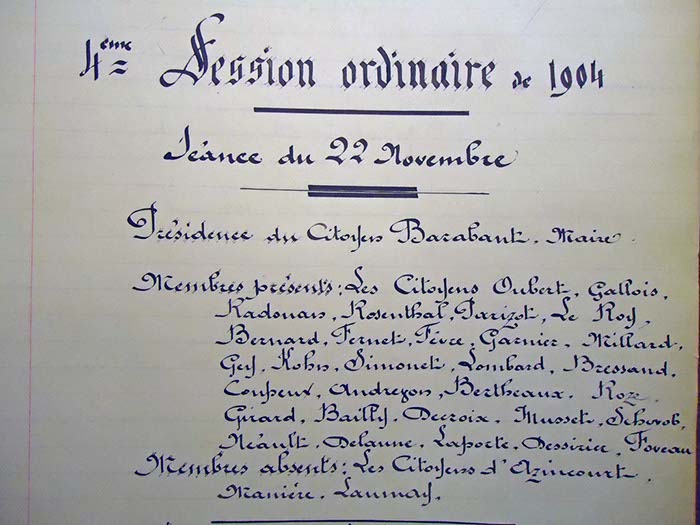 4ème Session ordinaire de 1904
Séance du 22 Novembre
Présidence du Citoyen Barabant, Maire.
Membres présents: Les Citoyens Oubert, Gallois,
Radouan, Rosenthal, Parizot, Le Roy,
Bernard, Fernet, Fèvre, Garnier, Millard,
Gey, Kohn, Simonet, Lombard, Bressand,
Coupeux, Andregon, Bertheaux, Roze,
Girard, Bailly, Decroix, Musset, Schorob,
Néault, Delaune, Laporte, Dessirier, Foveau
Membres absents: Les Citoyens d'Azincourt,
Manière, Launay.